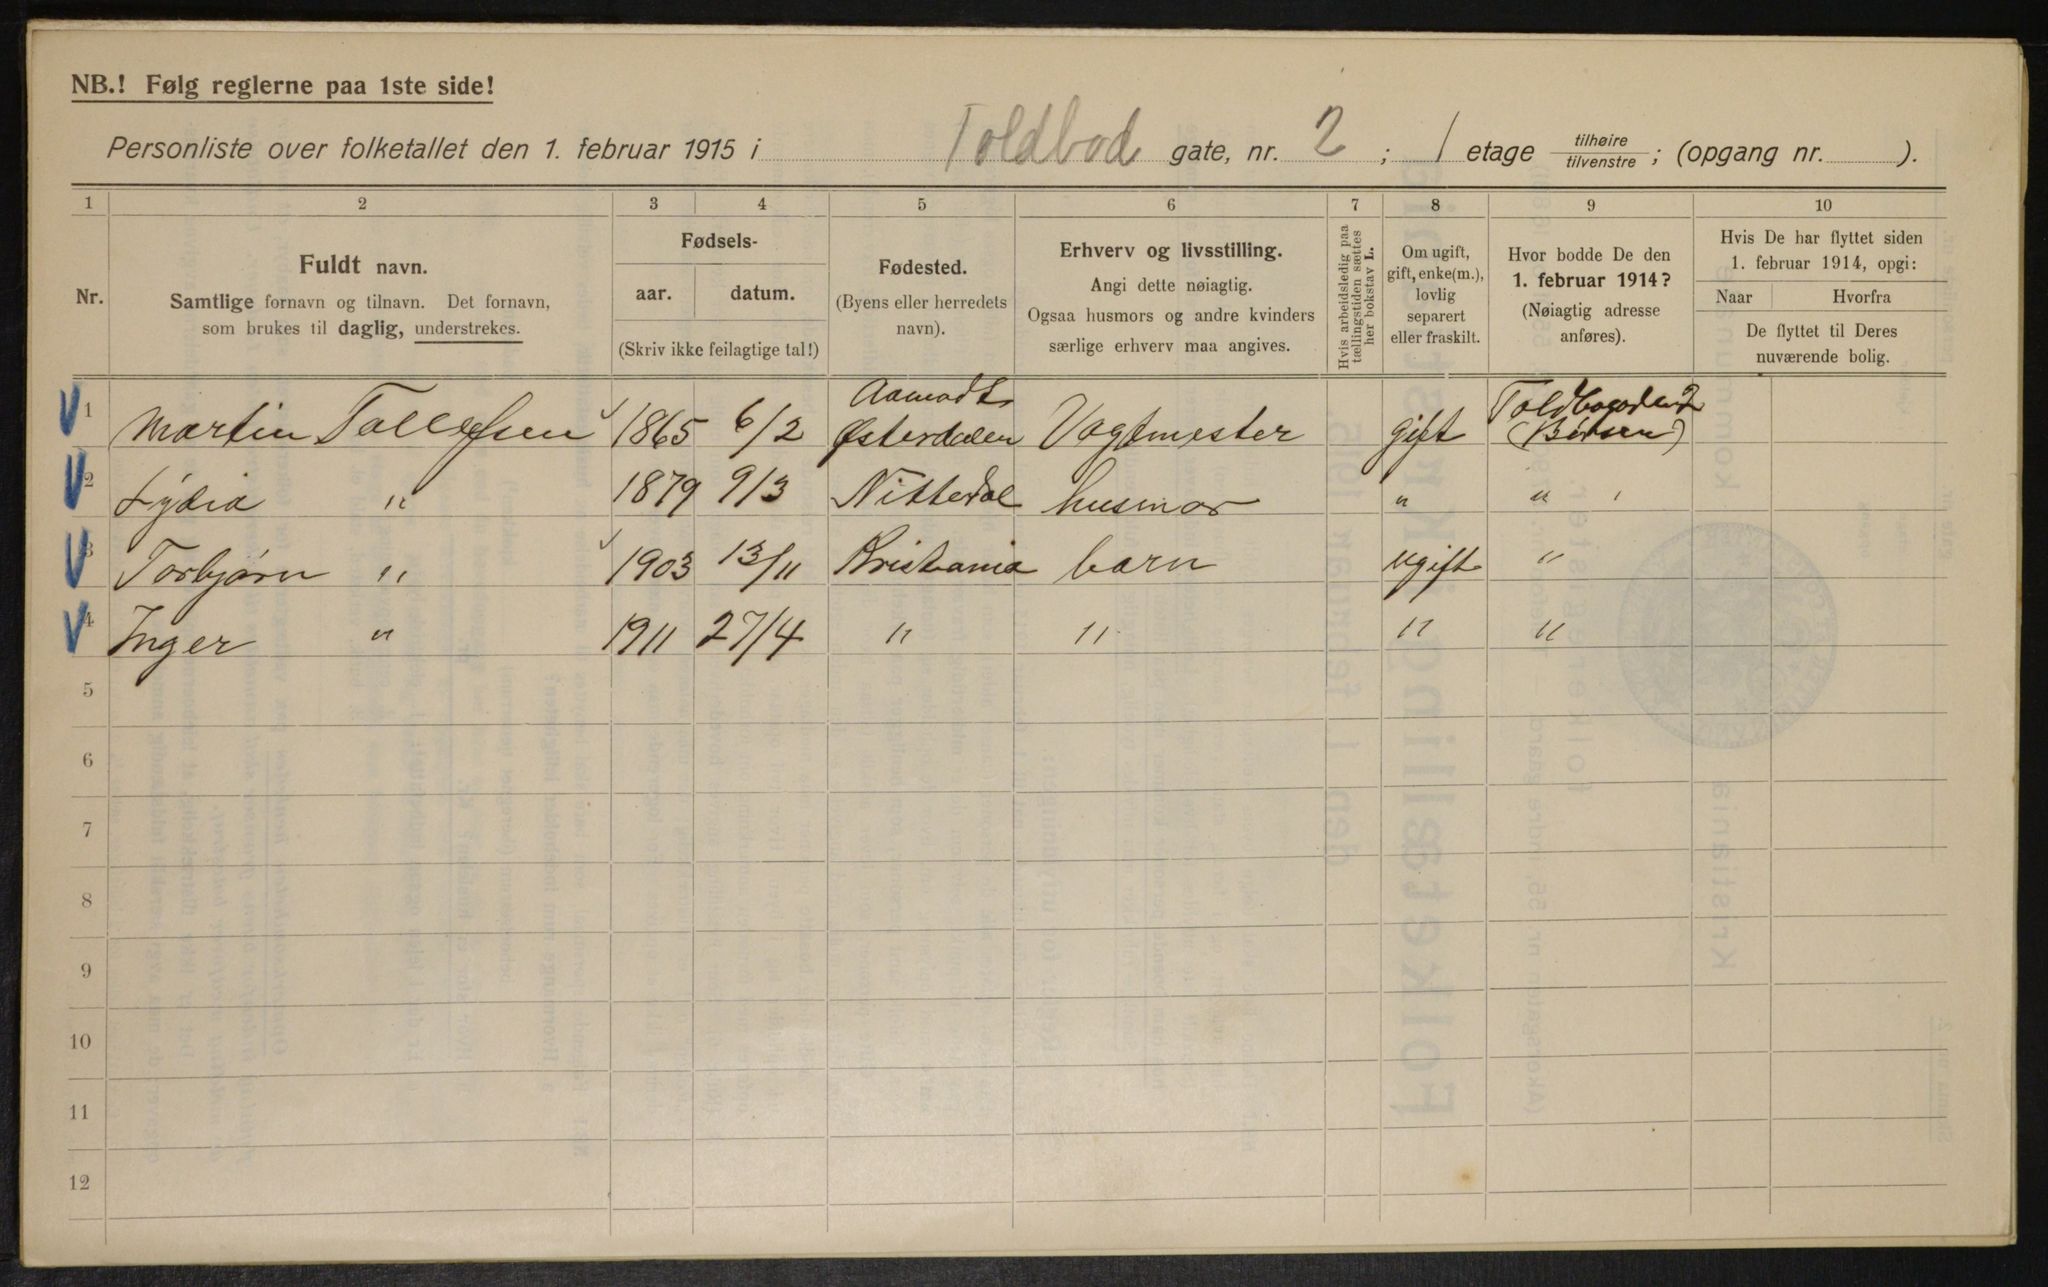 NB.! Følg reglerne paa 1ste side!
Personliste over folketallet den 1. februar 1915 i Toldbod gate, nr. 2 ; 1 etage tilhøire tilvenstre ; (opgang nr. ).
1 2 3 4 5 6 7 8 9 10
Nr.
Fuldt navn.
Samtlige fornavn og tilnavn. Det fornavn,
som brukes til daglig, understrekes.
Fødsels-
aar. datum.
(Skriv ikke feilagtige tal!)
Fødested.
(Byens eller herredets
navn).
Erhverv og livsstilling.
Angi dette nøiagtig.
Ogsaa husmors og andre kvinders
særlige erhverv maa angives.
Hvis arbeidsledig paa
tællingstiden sættes
her bokstav L.
Om ugift,
gift, enke(m.),
lovlig
separert
eller fraskilt.
Hvor bodde De den
1. februar 1914?
(Nøiagtig adresse
anføres).
Hvis De har flyttet siden
1. februar 1914, opgi:
Naar Hvorfra
De flyttet til Deres
nuværende bolig.
1 Martin Tollefsen 1865 6/2 Aamodt Østerdalen Vagtmester gift (Børsen)
2 Lydia " 1879 9/3 Nittedal husmor " "
3 Torbjørn " 1903 13/11 Kristiania barn ugift "
4 Inger " 1911 27/4 " " " "
5
6
7
8
9
10
11
12